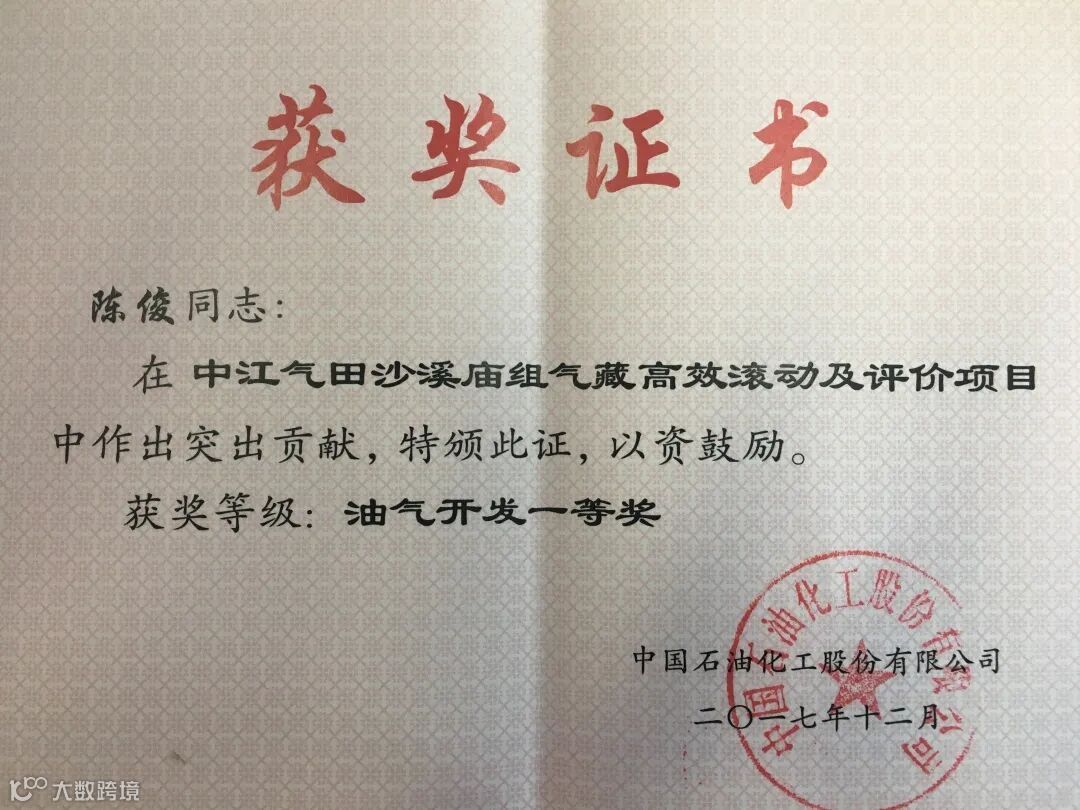 获奖证书
陈俊同志：
在 中江气田沙溪庙组气藏高效滚动及评价项目
中作出突出贡献，特颁此证，以资鼓励。
获奖等级：油气开发一等奖
中国石油化工股份有限公司
中国石油化工股份有限公司
二〇一七年十二月
大数跨境